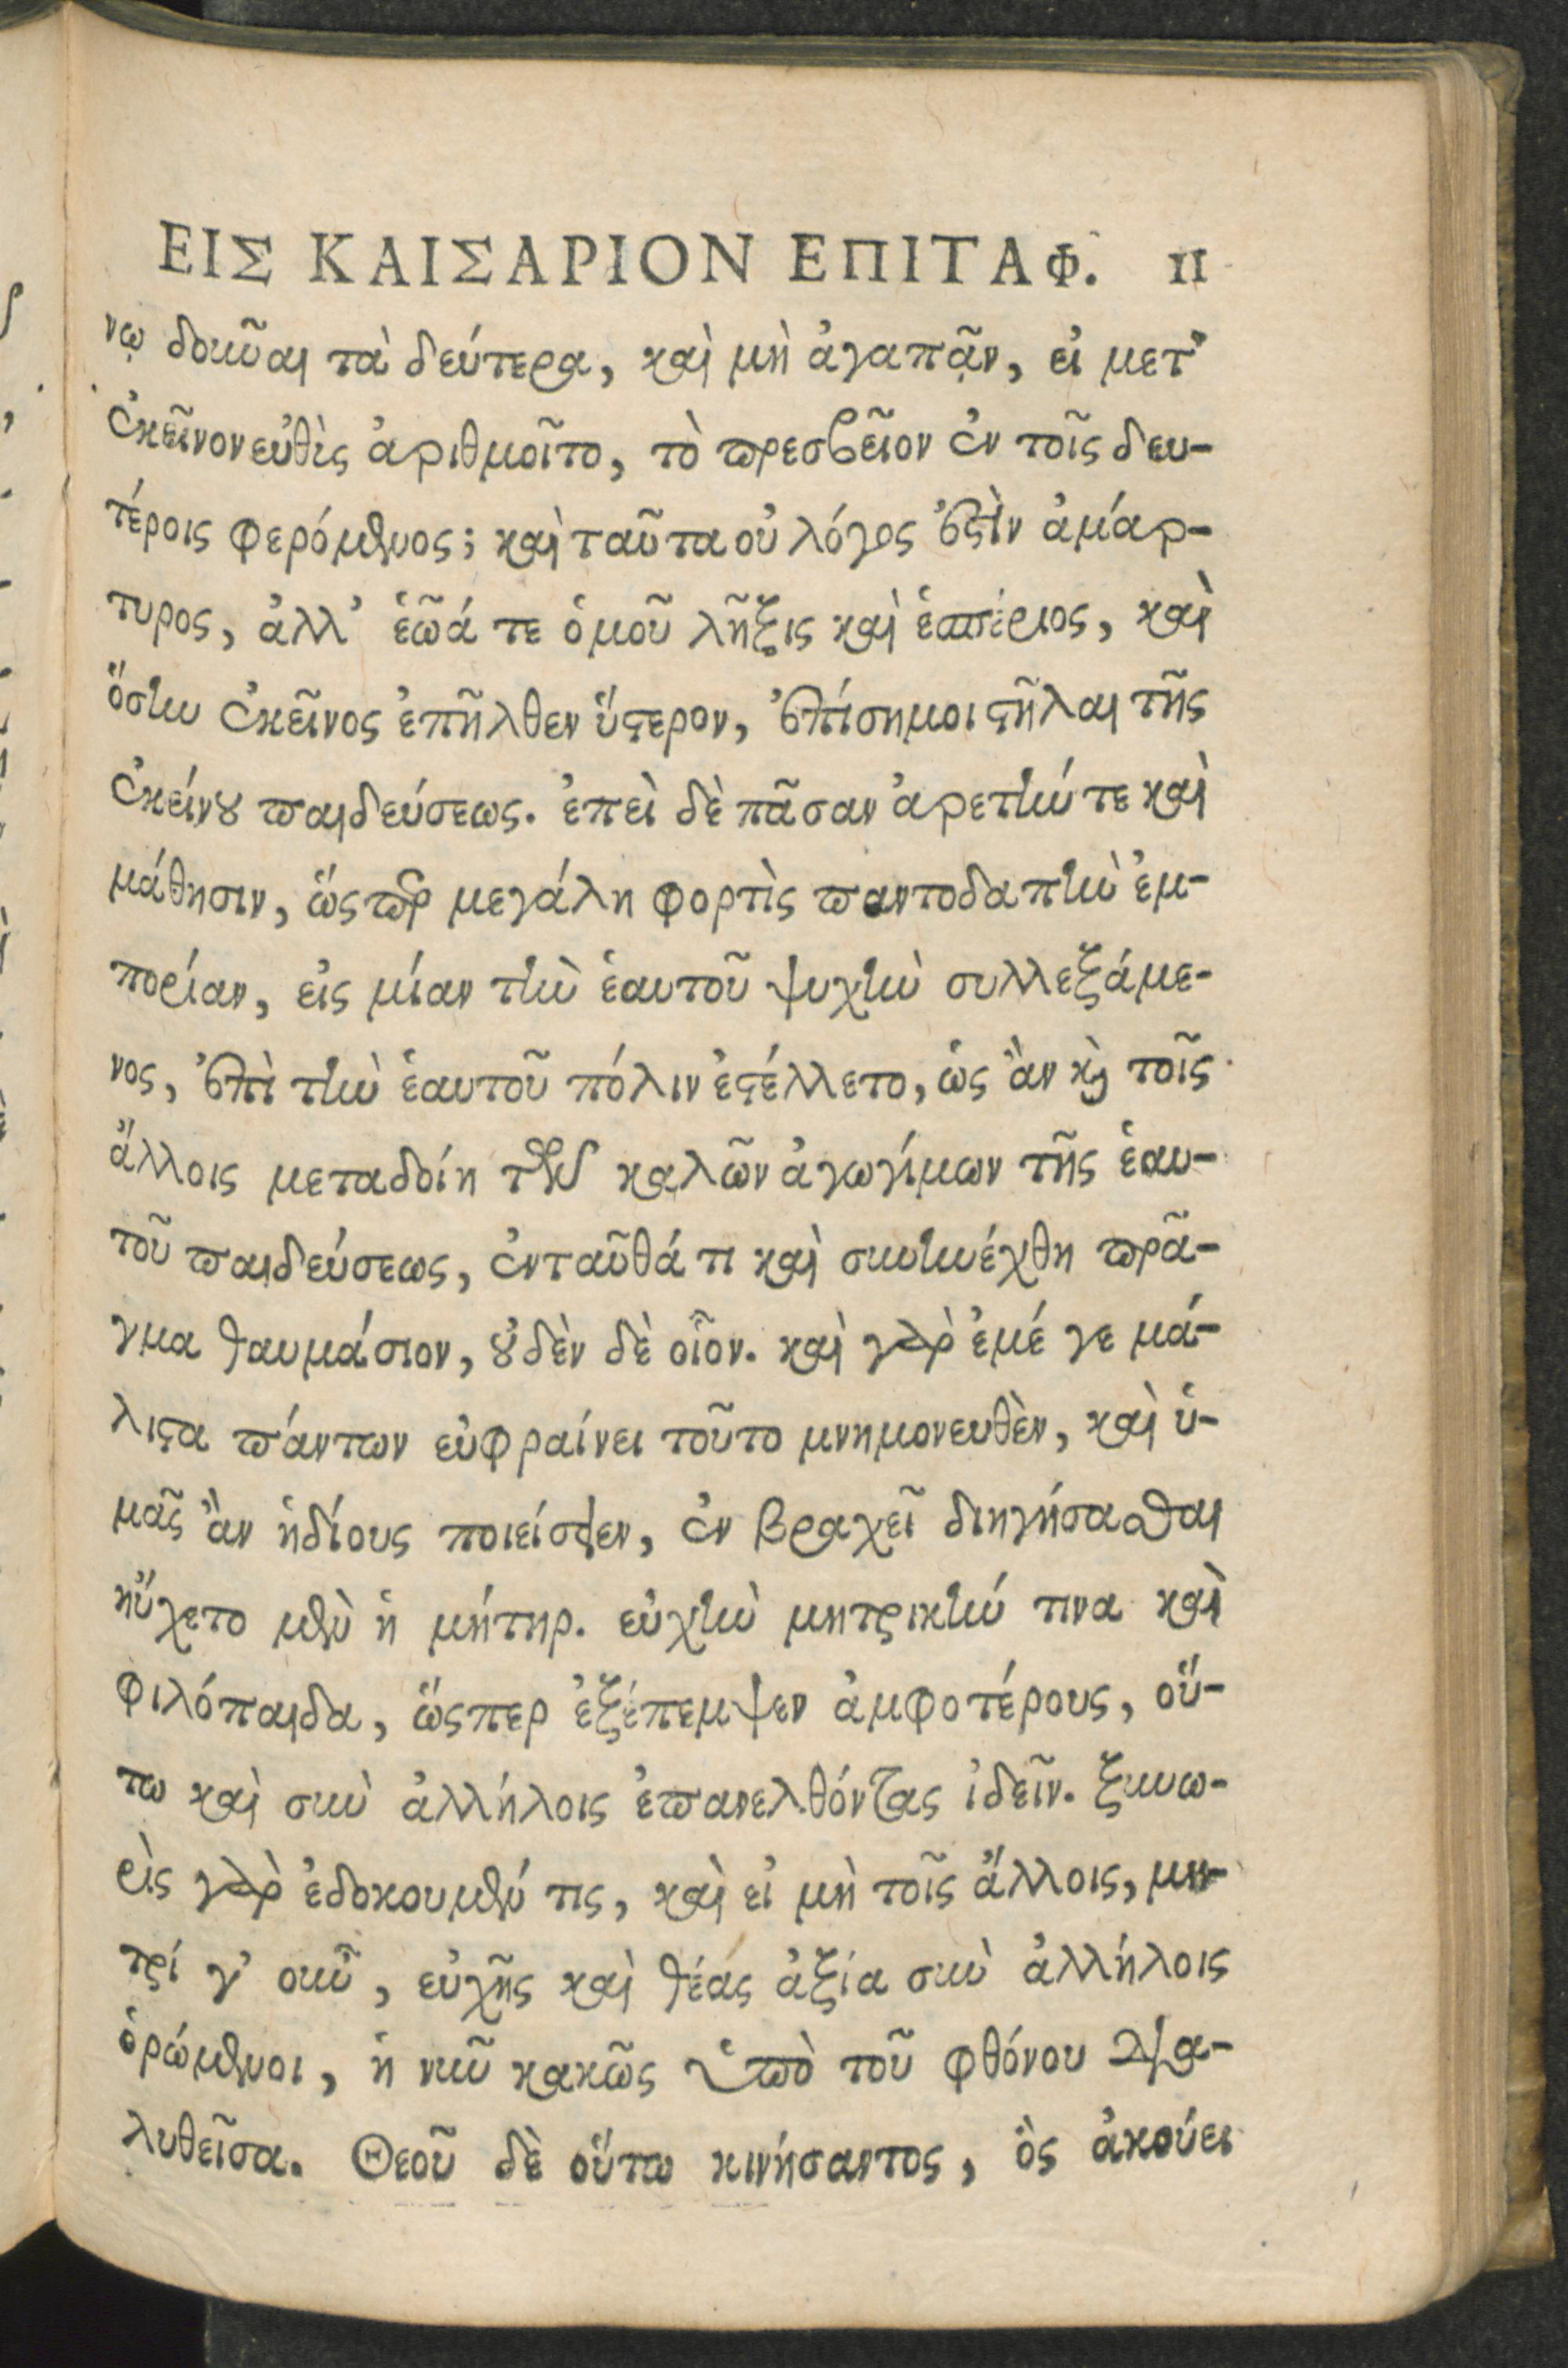 ΕΙΣ ΚΑΙΣΑΡΙΟΝ ΕΠΙΤΑΦ. 11
νῳ δοκοῦσαι τὰ δεύτερα, καὶ μὴ ἀγαπᾷν, εἰ μετ'
ἐκεῖνον εὐθὺς ἀριθμοῖτο, τὸ πρεσβεῖον ἐν τοῖς δευ-
τέροις φερόμενος; καὶ ταῦτα οὐ λόγος ἐστὶν ἀμάρ-
τυρος, ἀλλ' ἑῶά τε ὁμοῦ λῆξις καὶ ἑσπέριος, καὶ
ὅσην ἐκεῖνος ἐπῆλθεν ὕστερον, ἐπίσημοι στῆλαι τῆς
ἐκείνου παιδεύσεως. ἐπεὶ δὲ πᾶσαν ἀρετήν τε καὶ
μάθησιν, ὥσπερ μεγάλη φορτὶς παντοδαπὴν ἐμ-
πορίαν, εἰς μίαν τὴν ἑαυτοῦ ψυχὴν συλλεξάμε-
νος, ἐπὶ τὴν ἑαυτοῦ πόλιν ἐστέλλετο, ὡς ἂν καὶ τοῖς
ἄλλοις μεταδοίη τῶν καλῶν ἀγωγίμων τῆς ἑαυ-
τοῦ παιδεύσεως, ἐνταῦθά τι καὶ συνηνέχθη πρᾶ-
γμα θαυμάσιον, οὐδὲν δὲ οἷον. καὶ γὰρ ἐμέ γε μά-
λιστα πάντων εὐφραίνει τοῦτο μνημονευθὲν, καὶ ὑ-
μᾶς ἂν ἡδίους ποιείσειεν, ἐν βραχεῖ διηγήσασθαι
ηὔχετο μὲν ἡ μήτηρ. εὐχὴν μητρικήν τινα καὶ
φιλόπαιδα, ὥσπερ ἐξέπεμψεν ἀμφοτέρους, οὕ-
τω καὶ σὺν ἀλλήλοις ἐπανελθόντας ἰδεῖν. ξυνω-
ρὶς γὰρ ἐδοκοῦμέν τις, καὶ εἰ μὴ τοῖς ἄλλοις, μη-
τρί γ' οὖν, εὐχῆς καὶ θέας ἀξία σὺν ἀλλήλοις
ὁρώμενοι, ἡ νῦν κακῶς ὑπὸ τοῦ φθόνου δια-
λυθεῖσα. Θεοῦ δὲ οὕτω κινήσαντος, ὃς ἀκούει